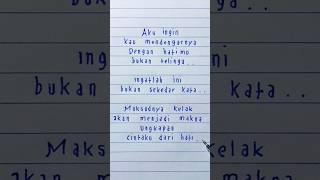 Aku ingin
kau mendengarnya
Dengan hatimu
bukan telinga..
ingatlah ini
bukan sekedar kata..
Maksudnya kelak
akan menjadi makna
Ungkapan
cintaku dari hati.